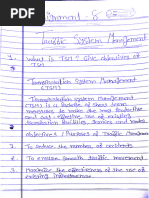 Assignment - 8
Traffic System Management
1. What is TSM? Give objectives of
TSM
Transportation System Management
(TSM)
Transportation System Management
(TSM) is a
measures to make the most productive
and cost effective use of existing
transportation facilities, services and
Objectives / Purpose of Traffic
1. To reduce the number of accidents
2. To ensure smooth traffic movement
3. Maximize the effectiveness of the use of
existing infrastructure